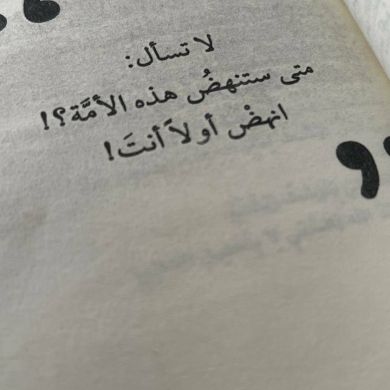 لا تسأل:
متى ستنهضُ هذه الأمَّة؟!
انهضْ أولاً أنتَ!